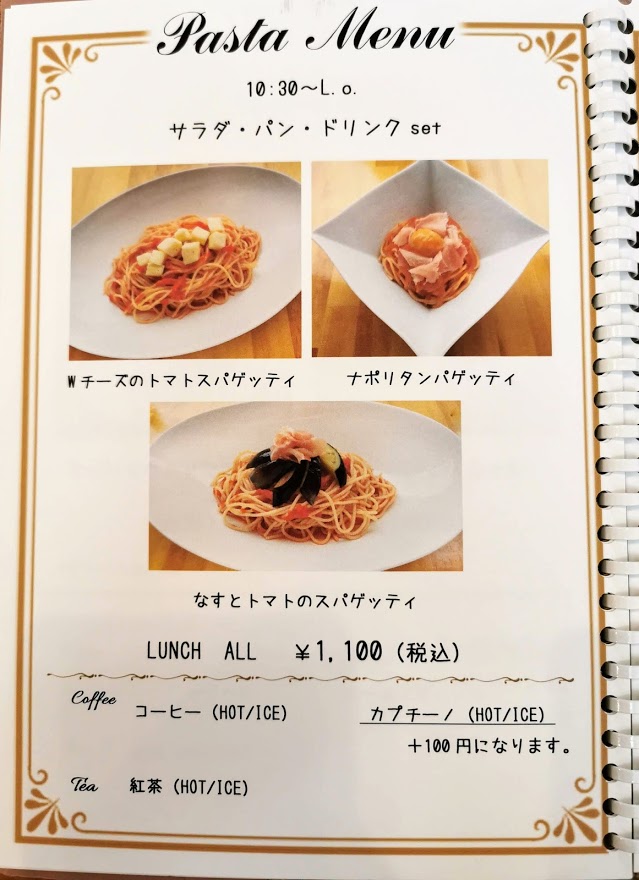 Pasta Menu
10:30～L.o.
サラダ・パン・ドリンク set
Wチーズのトマトスパゲッティ
ナポリタンパゲッティ
なすとトマトのスパゲッティ
LUNCH ALL ￥1,100 (税込)
Coffee コーヒー (HOT/ICE) カプチーノ (HOT/ICE)
＋100円になります。
Tea 紅茶 (HOT/ICE)